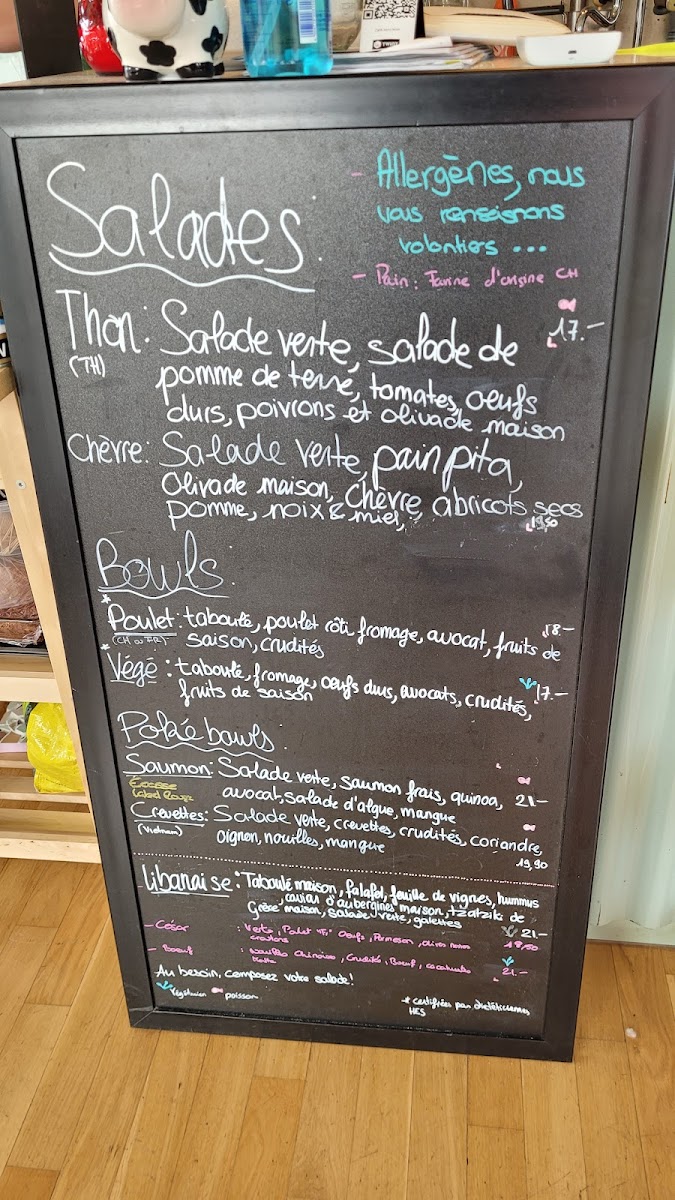 Salades:
- Allergènes, nous
vous renseignons
volontiers ...
- Pain: Farine d'origine CH
Thon: Salade verte, salade de 17.-
(TH) pomme de terre, tomates, oeufs
durs, poivrons et olivade maison
Chèvre: Salade verte, pain pita,
olivade maison, Chèvre, abricots secs
pomme, noix & miel, 19,50
Bowls:
* Poulet: taboulé, poulet rôti, fromage, avocat, fruits de 18.-
(CH ou FR) saison, crudités
* Végé: taboulé, fromage, oeufs durs, avocats, crudités, 17.-
fruits de saison
Poké bowls:
Saumon: Salade verte, saumon frais, quinoa, 21.-
Ecosse avocat, salade d'algue, mangue
Label Rouge
Crevettes: Salade verte, crevettes, crudités, coriandre,
(Vietnam) oignon, nouilles, mangue 19,90
Libanaise: Taboulé maison, falafel, feuille de vignes, hummus
caviar d'aubergines maison, tzatziki de
Grèce maison, salade verte, galettes 21.-
- César : Verte, Poulet, Oeufs, Parmesan, 18,50
croutons
- Boeuf : nouilles Chinoises, Crudité, Boeuf, 21.-
Au besoin, composez votre salade!
végétarien poisson
* certifiées par diététiciennes
HES